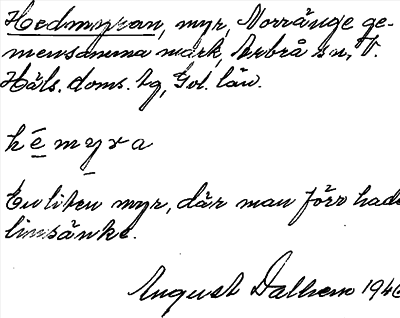 Hedmyran, myr, Norränge ge-
mensamma mark, Arbrå sn, V.
Häls. doms. tg, Gvl. län.
hemyra
En liten myr, där man förr hade
linsänke.
August Dalhem 1946